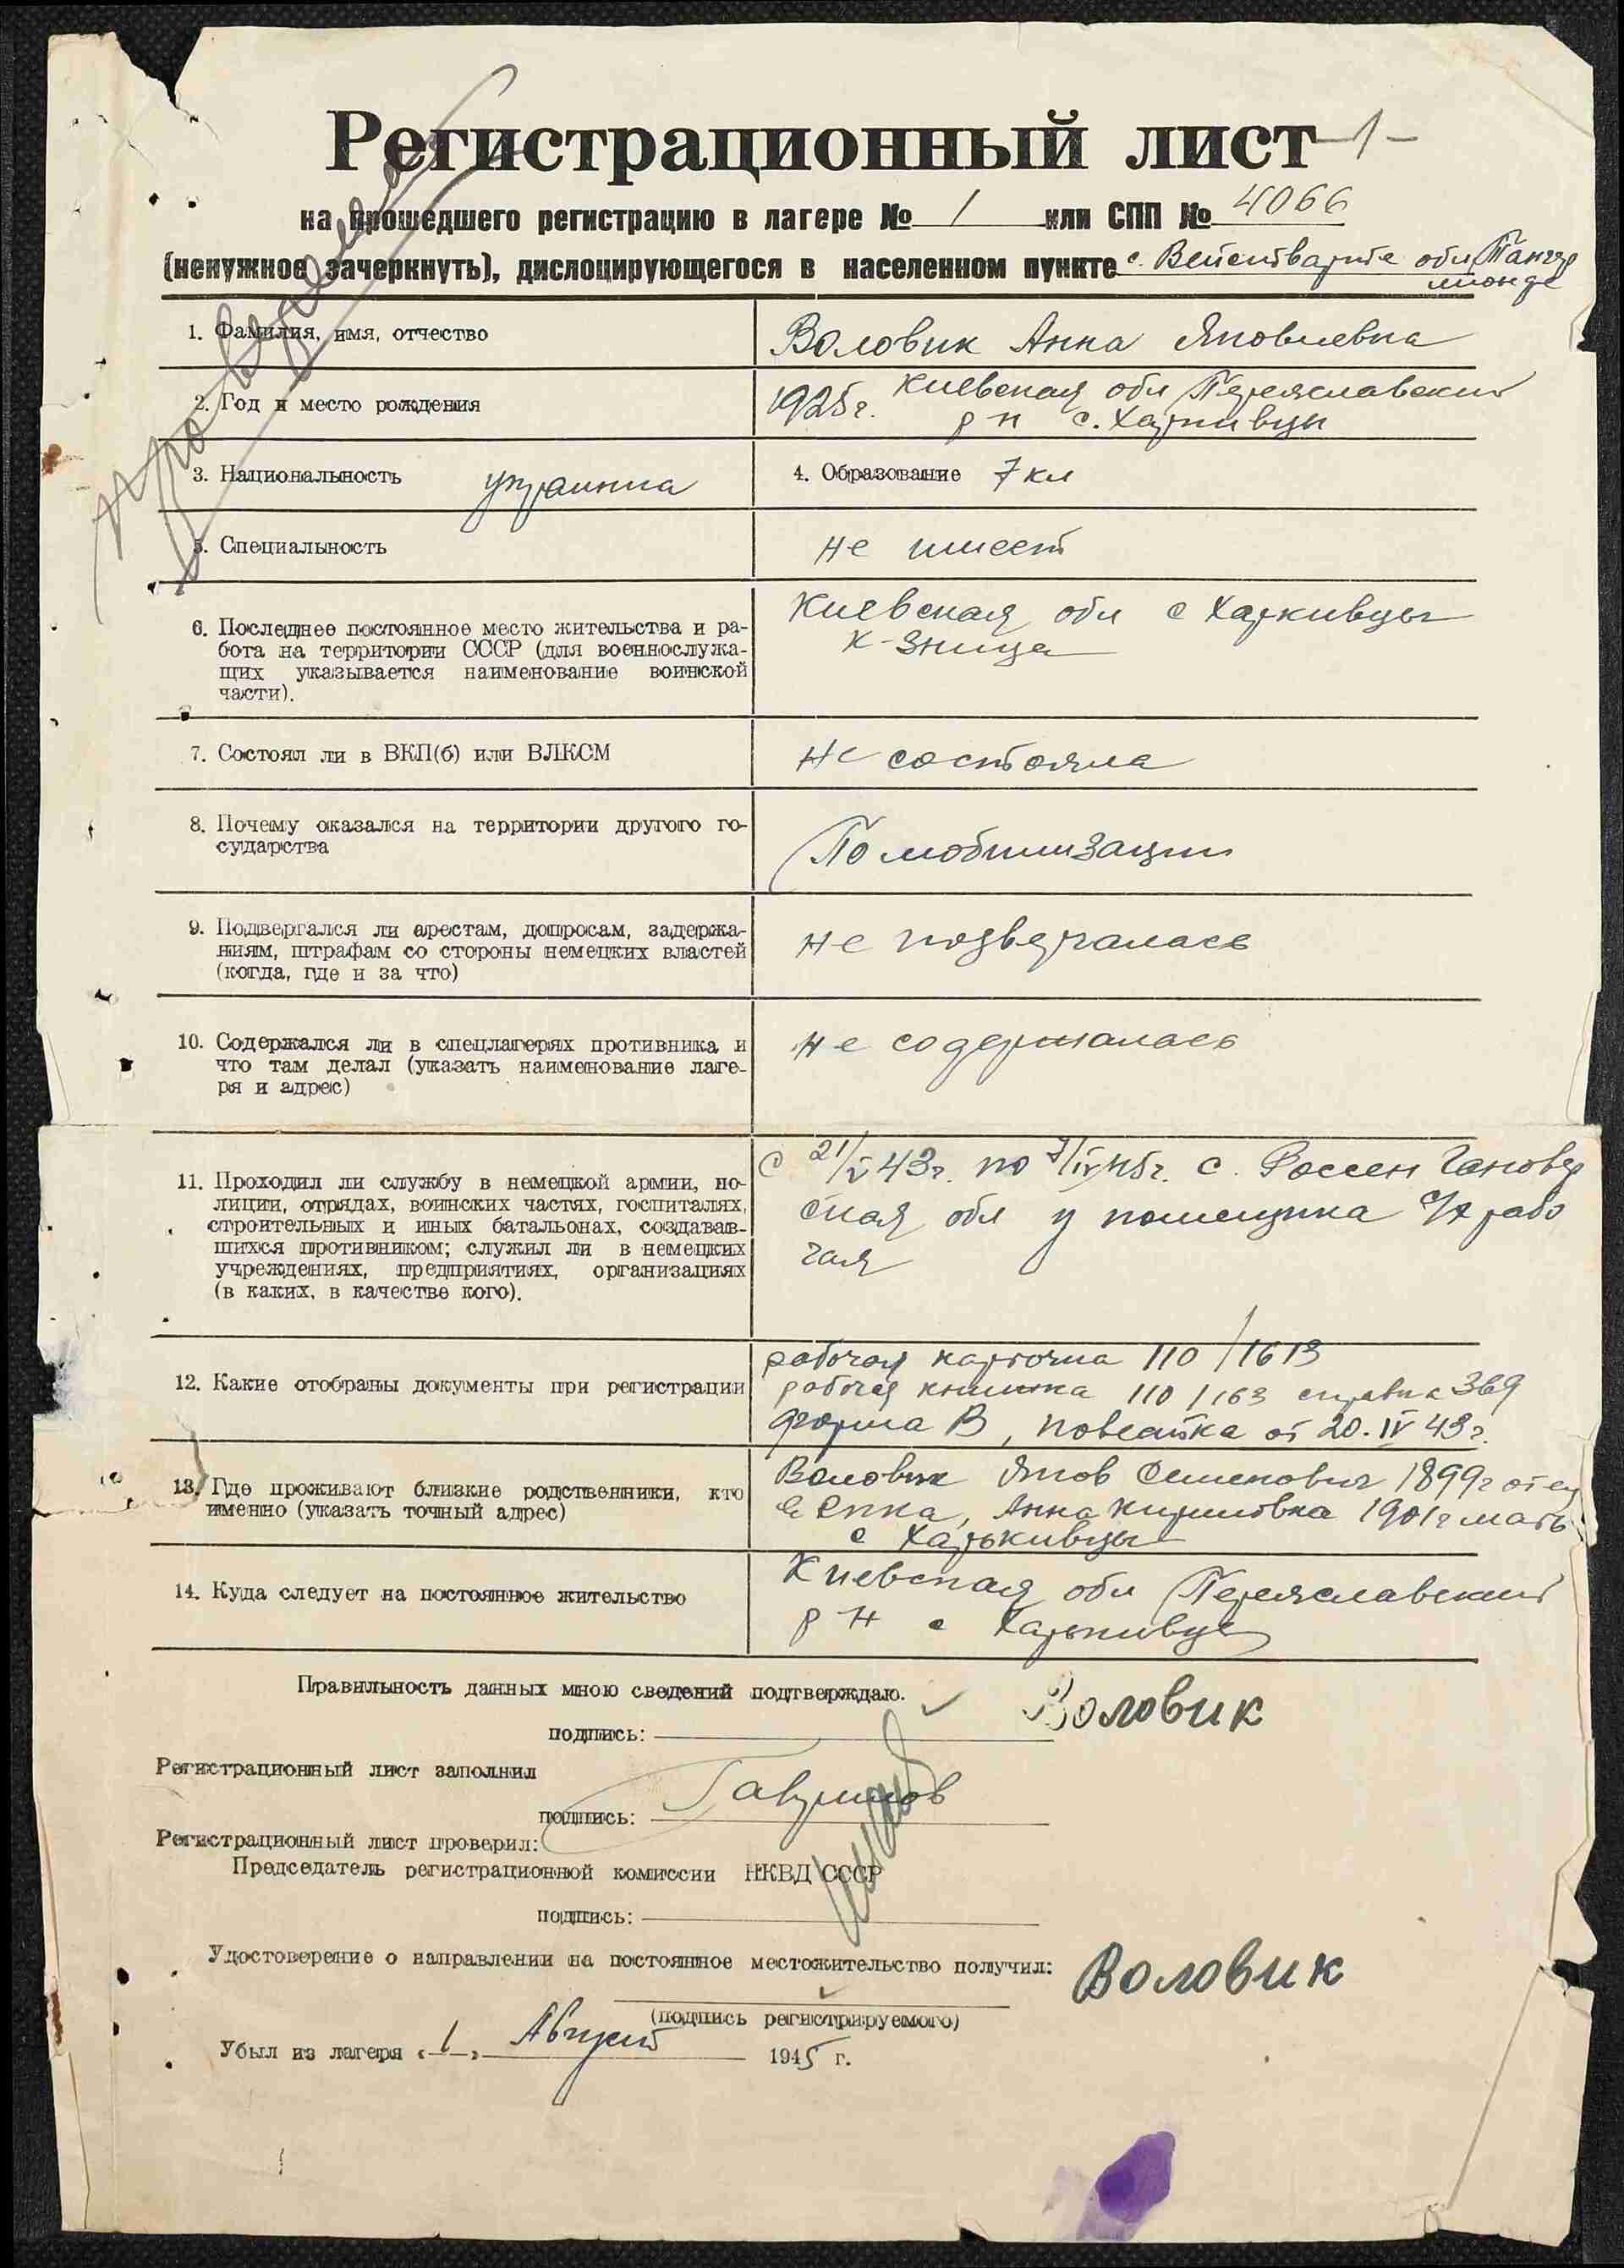 Регистрационный лист -1-
на прошедшего регистрацию в лагере № 1 или СПП № 4066
(ненужное зачеркнуть), дислоцирующегося в населенном пункте с. обл.
1. Фамилия, имя, отчество Воловик Анна Яковлевна
2. Год и место рождения 1925 г. Киевская обл Переяславский
р н с. Харкивцы
3. Национальность украинка 4. Образование 7 кл
5. Специальность не имеет
6. Последнее постоянное место жительства и ра-
бота на территории СССР (для военнослужа-
щих указывается наименование воинской
части).
Киевская обл с Харкивцы
к-зница
7. Состоял ли в ВКП(б) или ВЛКСМ не состояла
8. Почему оказался на территории другого го-
сударства
По мобилизации
9. Подвергался ли арестам, допросам, задержа-
ниям, штрафам со стороны немецких властей
(когда, где и за что)
не подвергалась
10. Содержался ли в спецлагерях противника и
что там делал (указать наименование лаге-
ря и адрес)
не содержалась
11. Проходил ли службу в немецкой армии, по-
лиции, отрядах, воинских частях, госпиталях,
строительных и иных батальонах, создавав-
шихся противником; служил ли в немецких
учреждениях, предприятиях, организациях
(в каких, в качестве кого).
с 21/V 43 г. по 7/IV 45 г. с. Рассен Гановер
ская обл у помещика с/х рабо
чая
12. Какие отобраны документы при регистрации
рабочая карточка 110/1613
рабочая книжка 110/163 справка 369
форма В, повестка от 20.IV 43 г.
13. Где проживают близкие родственники, кто
именно (указать точный адрес)
Воловик Яков Семенович 1899 г отец
Анна Кириловна 1901 г мать
с Харькивцы
14. Куда следует на постоянное жительство
Киевская обл Переяславский
р н с Харькивцы
Правильность данных мною сведений подтверждаю.
подпись: Воловик
Регистрационный лист заполнил
подпись: Гаврилов
Регистрационный лист проверил:
Председатель регистрационной комиссии НКВД СССР
подпись:
Удостоверение о направлении на постоянное местожительство получил: Воловик
(подпись регистрируемого)
Убыл из лагеря «1» Август 1945 г.